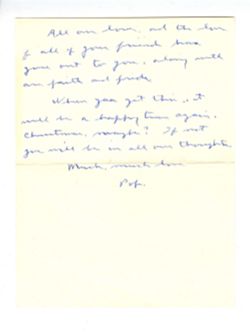 All our love, and the love
of all of your friends have
gone out to you, along with
our faith and pride.
When you get this, it
will be a happy time again.
Christmas, maybe? If not
you will be in all our thoughts.
Much, much love
Pop.